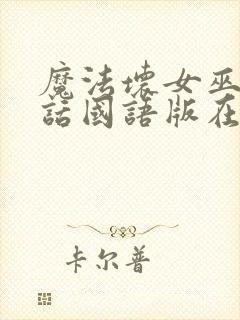 魔法壞女巫
話國語版在
卡尔普